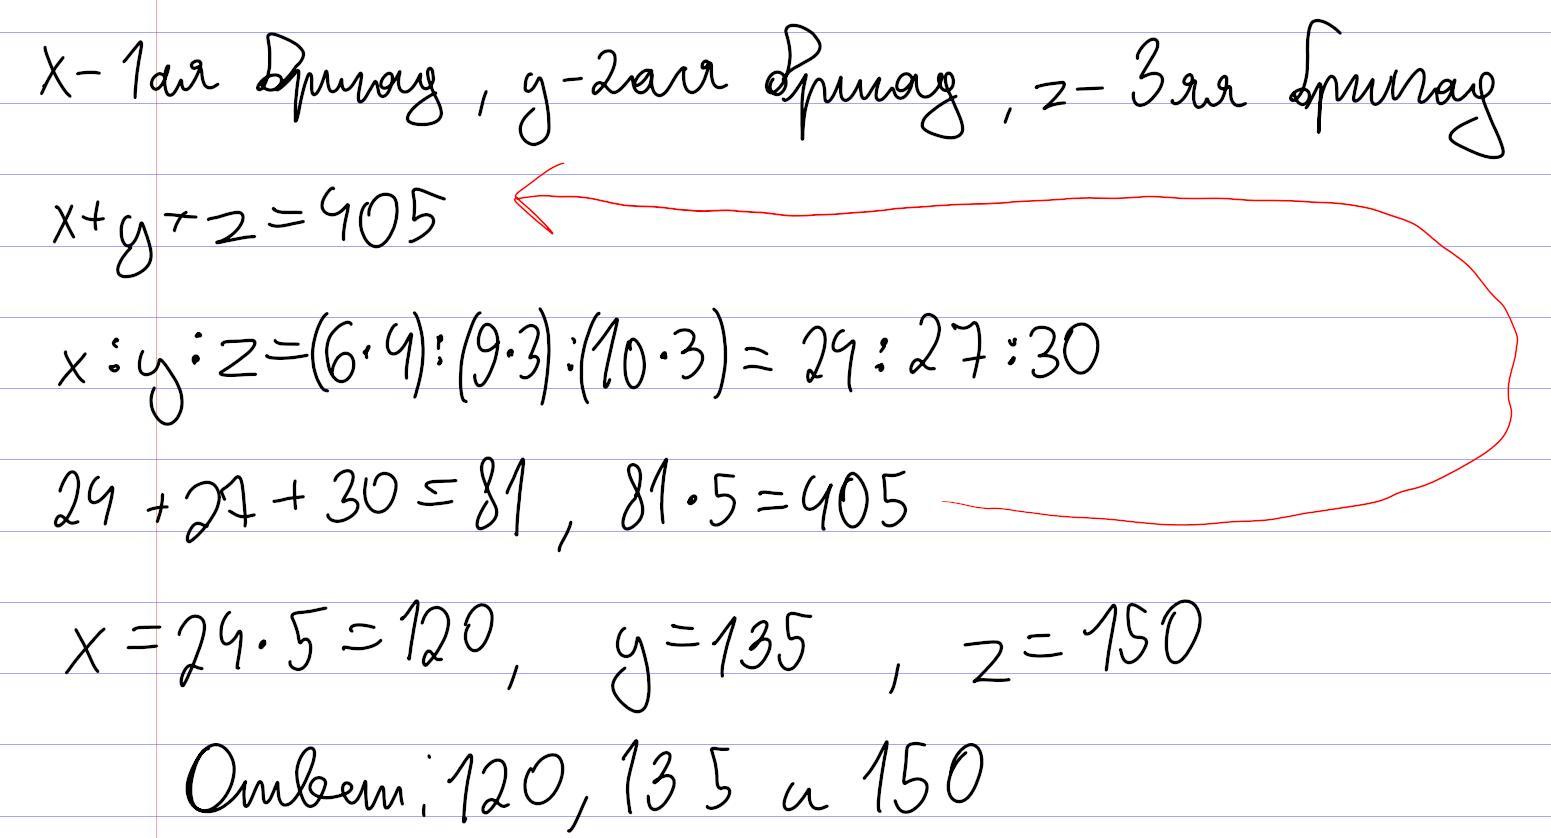 x - 1ая бригад, y - 2ая бригад, z - 3яя бригад
x + y + z = 405
x : y : z = (6 · 4) : (9 · 3) : (10 · 3) = 24 : 27 : 30
24 + 27 + 30 = 81, 81 · 5 = 405
x = 24 · 5 = 120, y = 135, z = 150
Ответ: 120, 135 и 150